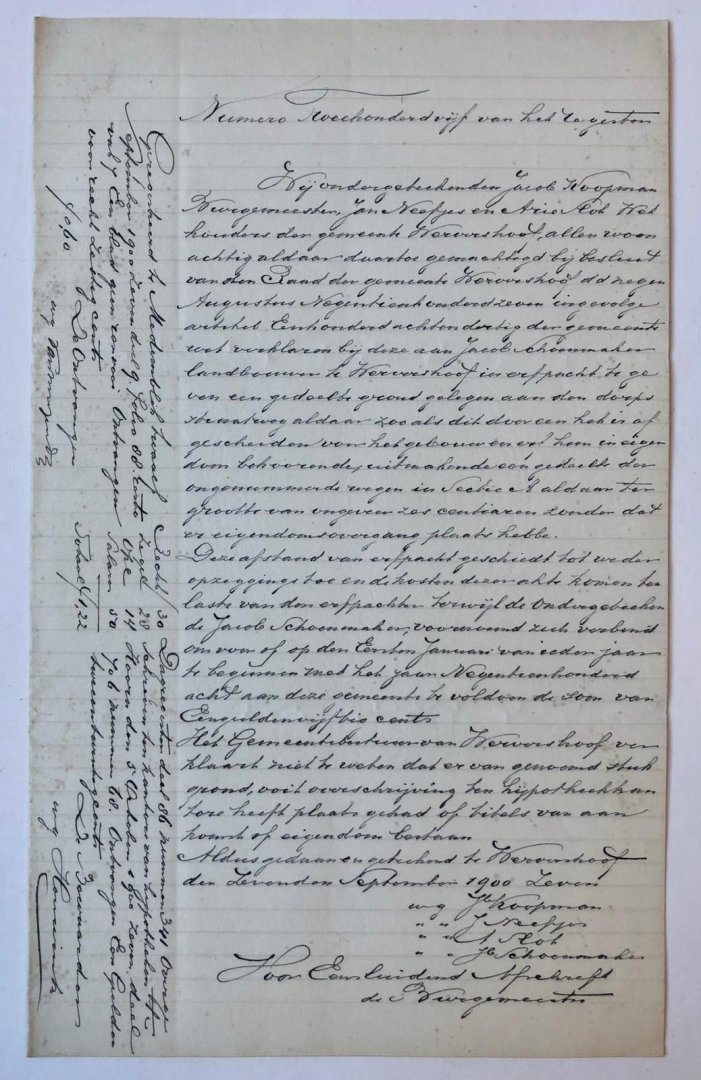 Numero Tweehonderdvijf van het register
Wij ondergeteekenden Jacob Koopman
Burgemeester, Jan Neefjes en Arie Slot Wet
houders der gemeente Wervershoof, allen woon
achtig aldaar daartoe gemachtigd bij besluit
van den Raad der gemeente Wervershoof d.d. negen
Augustus Negentienhonderdzeven ingevolge
artikel Eenhonderdachtendertig der gemeente
wet verklaren bij deze aan Jacob Schoenmaker
landbouwer te Wervershoof in erfpacht te ge
ven een gedeelte grond gelegen aan den dorps
straatweg aldaar zooals dit door een hek is af
gescheiden voor het gebouw en erf hem in eigen
dom behoorende, uitmakende een gedeelte der
ongenummerde wegen in Sectie A aldaar ter
grootte van ongeveer zes centiaren zonder dat
er eigendomsovergang plaats hebbe.
Deze afstand van erfpacht geschiedt tot weder
opzeggings toe en de kosten dezer akte komen ten
laste van den erfpachter terwijl de ondergeteeken
de Jacob Schoenmaker, voornoemd zich verbind
om voor of op den Eersten Januari van ieder jaar
te beginnen met het jaar Negentienhonderd
acht aan deze gemeente te voldoen de som van
Eengulden vijftig cents
Het Gemeentebestuur van Wervershoof ver
klaart niet te weten dat er van genoemd stuk
grond, ooit overschrijving ten hypotheekkan
tore heeft plaats gehad of titels van aan
komst of eigendom bestaan
Aldus gedaan en geteekend te Wervershoof
den Zevenden September 1900 Zeven
w g Jb Koopman
" " J Neefjes
" " A Slot
" " Jb Schoenmaker
Voor Eensluidend Afschrift
de Burgemeester
Geregistreerd te Medemblik twaalf
September 1900 zeven deel 9 folio 88 recto
vak 7 Een blad geen renvooi Ontvangen
voor recht zestig cents
f 0,60 De Ontvanger
wg
Recht f 30
Zegel 28
Opc 14
Salaris 50
Totaal f 1,22
Dagregister deel 86 nummer 341 Overge
schreven ten kantore van hypotheken te
Hoorn den 5 October 1900 zeven, deel
706 nummer 68. Ontvangen Een Gulden
tweeentwintig cents
De Bewaarder
wg